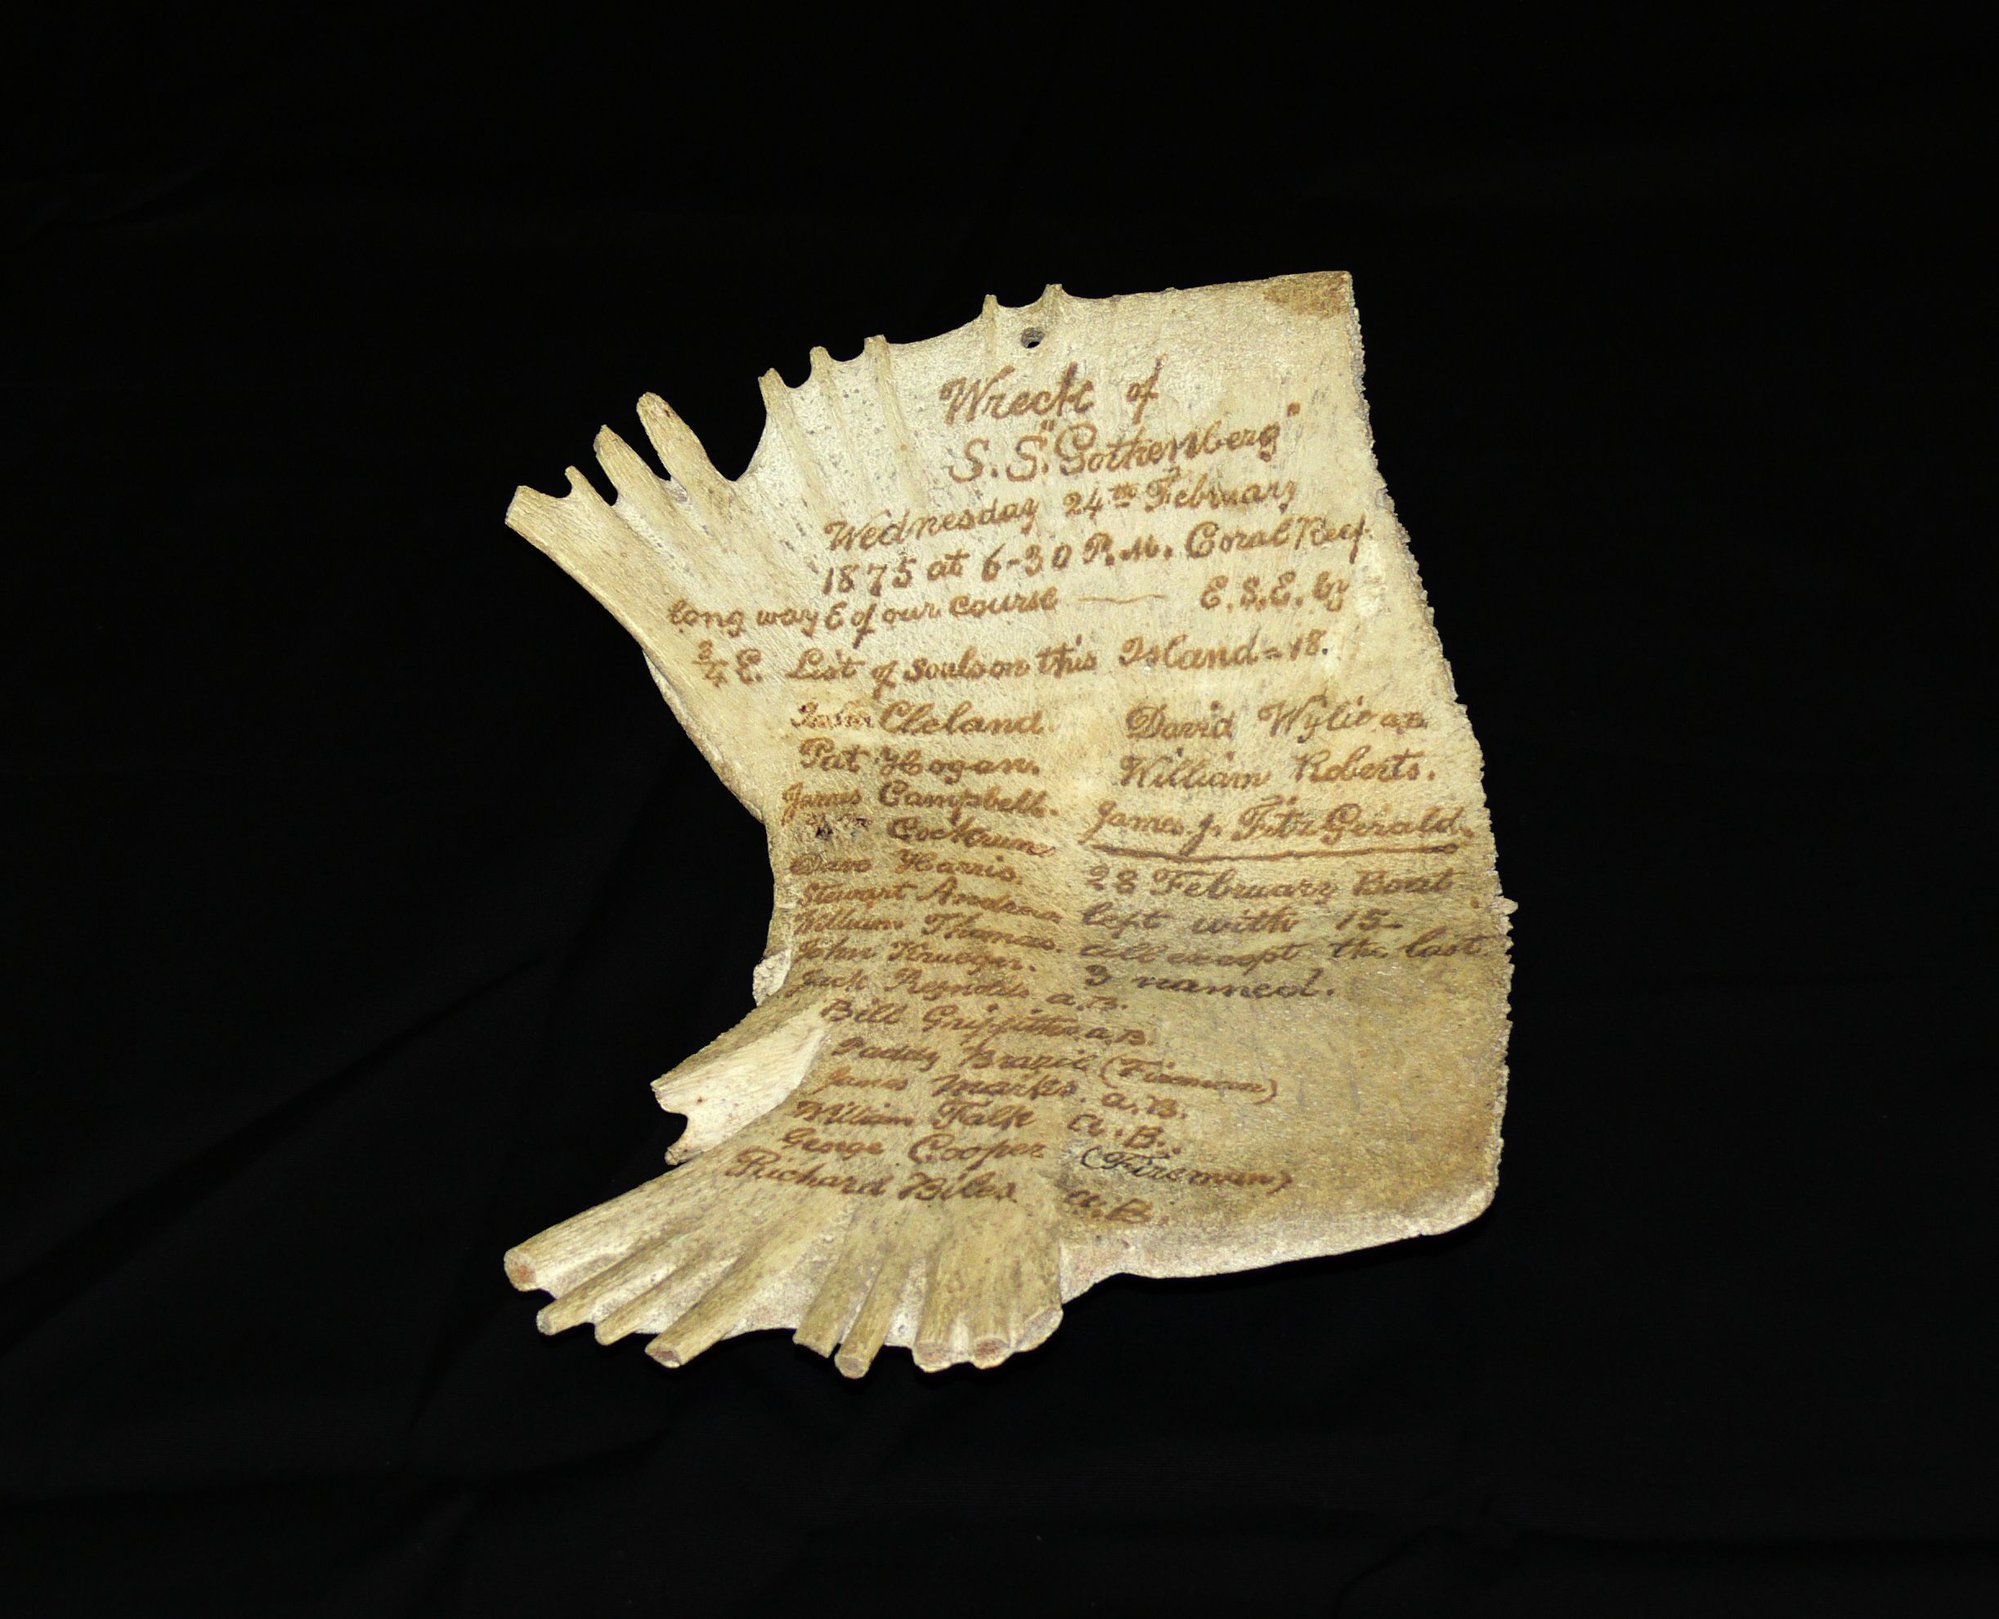 Wreck of
S.S. "Gothenberg"
Wednesday 24th February
1875 at 6-30 P.M. Coral Reef
long way E of our course — E.S.E. by
3/4 E. List of souls on this Island = 18.
John Cleland.
Pat Hogan.
James Campbell.
Cockrum
Dave Harris.
Stewart
William Thomas.
John Krueger.
Jack Reynolds a.B.
Bill Griffiths a.B.
Paddy (Fireman)
James Marks. a.B.
William Falk a.B.
George Cooper (Fireman)
Richard Biles a.B.
David Wylie a.B.
William Roberts.
James J. FitzGerald.
28 February Boat
left with 15-
all except the last
3 named.